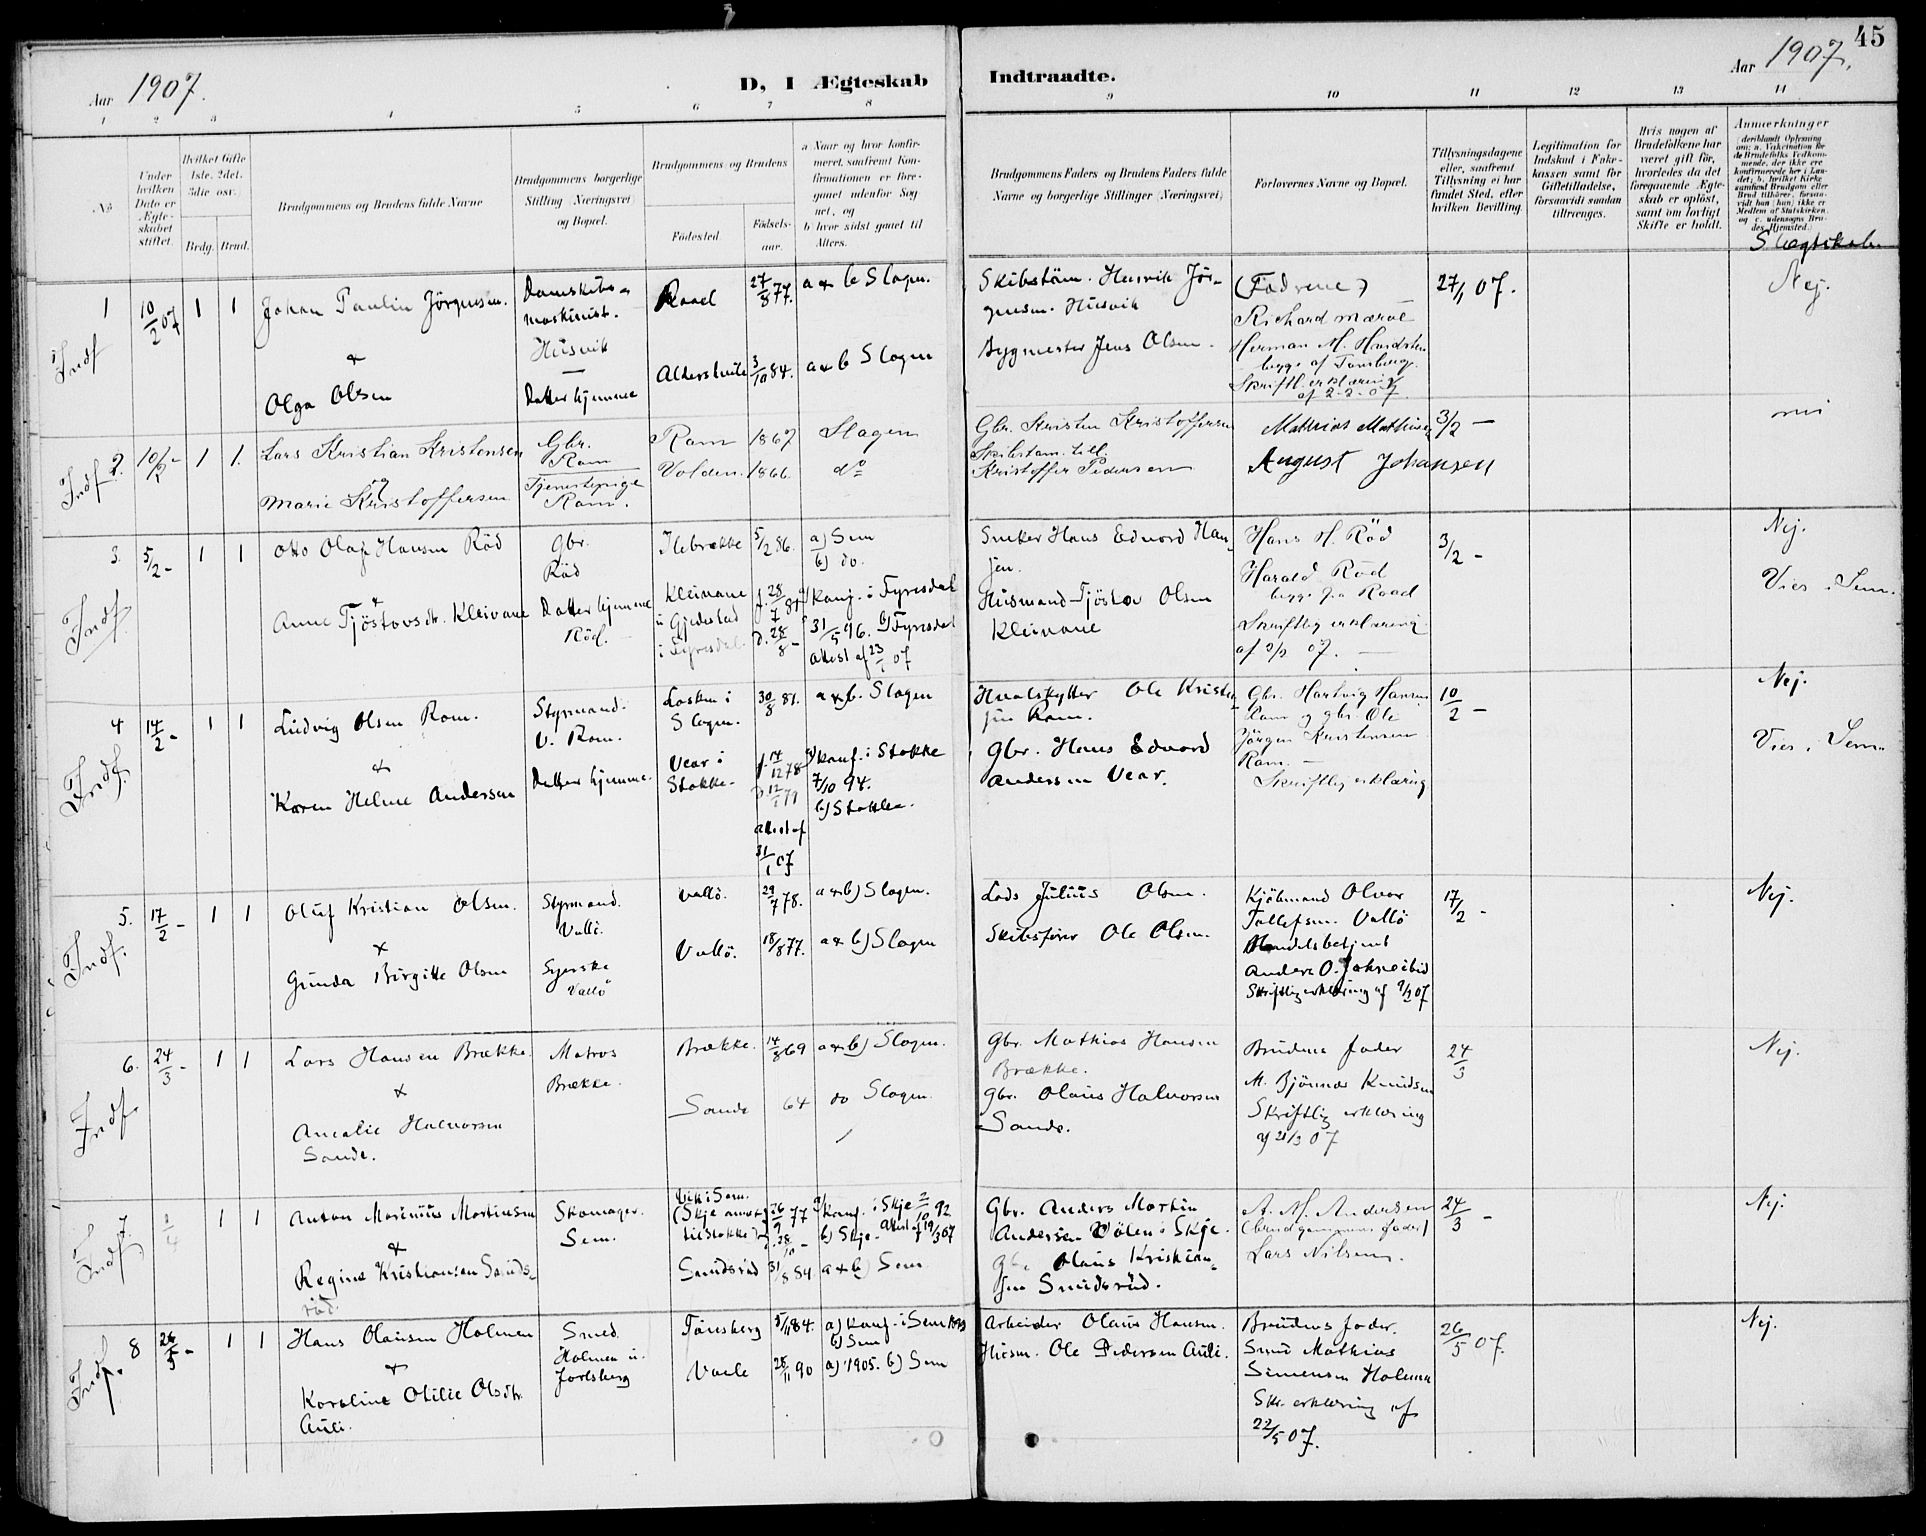 45
Aar 1907.
D, I Ægteskab
Indtraadte.
Aar 1907.
1 2 3 4 5 6 7 8 9 10 11 12 13 14
No
Under hvilken Dato er Ægteskabet stiftet.
Hvilket Gifte 1ste, 2det, 3die osv.
Brdg. Brud.
Brudgommens og Brudens fulde Navne
Brudgommens borgerlige Stilling (Næringsvei) og Bopæl.
Brudgommens og Brudens
Fødested.
Fødselsaar.
a Naar og hvor konfirmeret, saafremt Konfirmationen er foregaaet udenfor Sognet, og
b hvor sidst gaaet til Alters.
Brudgommens Faders og Brudens Faders fulde Navne og borgerlige Stillinger (Næringsvei)
Forlovernes Navne og Bopæl.
Tillysningsdagene eller, saafremt Tillysning ei har fundet Sted, efter hvilken Bevilling.
Legitimation for Indskud i Enkekassen samt for Giftetilladelse, forsaavidt saadan tiltrænges.
Hvis nogen af Brudefolkene har været gift før, hvorledes da det foregaaende Ægteskab er opløst, samt om lovligt Skifte er holdt.
Anmærkninger
Slægtskab.
Indf 1 10/2 07 1 1
Johan Paulin Jörgensen.
&
Olga Olsen
Damskibs-
maskinist.
Husvik
Datter hjemme
Raael 27/8 77. a & b Slagen.
3/10 84. a & b Slagen
Skibstöm. Henrik Jör-
gensen. Husvik
Bygmester Jens Olsen.
(Fædrene)
Richard
Herman M.
begge af Tönsberg.
Skriftl. erklæring
af 2-2-07.
27/1 07.
Nej.
Indf 2. 10/2 - 1 1.
Lars Kristian Kristensen
og
Marie Kristoffersen
Gbr.
Ram
Tjenestepige
Ram.
Ram 1867 Slagen
Volden. 1866. do
Gbr. Kristen Kristoffersen
Skibstøm.
Kristoffer Pedersen
Mathias Mathisen
August Johansen
3/2 -
nei
Indf. 3. 5/2 - 1 1
Otto Olaf Hansen Röd
&
Anne Tjöstovsdtr. Kleivane
Gbr.
Röd
Datter hjemme
Röd.
Ilebrække 5/2 86. a) Sem
b) do.
Kleivane
u Gjedestad
i Fyresdal.
f. 28/7 81
d. 28/8 -
a) Konf. i Fyresdal
31/5 96. b) Fyresdal
Attest af 23/1 07
Hans Edvard Han-
sen.
Husmand Tjöstov Olsen
Kleivane
Hans H. Röd
Harald Röd
begge fra Raael
Skriftlig erklæring
af 2/2 07.
3/2 -
Nej.
Vies i Sem.
Indf. 4 14/2 - 1 1
Ludvig Olsen Ram.
&
Karen Helene Andersen
Styrmand.
v. Ram.
Datter hjemme.
Lasken i
Slagen.
30/8 81. a & b. Slagen
Vear i
Stokke.
f. 14/12 78
d. 12/1 79
attest af
31/1 07
a) konf. i Stokke
7/10 94.
b) Stokke.
Hvalskytter Ole Kristen-
sen Ram.
Gbr. Hans Edvard
Andersen Vear.
Gbr. Hartvig Hansen
Ram og gbr. Ole
Jörgen Kristensen
Ram. -
Skriftlig erklæring
10/2 -
Nej.
Vies i Sem.
Indf. 5. 17/2 - 1 1
Oluf Kristian Olsen.
&
Gunda Birgitte Olsen
Styrmand.
Vallö.
Syerske
Vallö
Vallö. 29/7 78. a & b) Slagen.
Vallö. 18/8 77. a & b) Slagen
Lods Julius Olsen.
Skibsförer Ole Olsen.
Kjöbmand Olvar
Tallefsen. Vallö
Handelsbetjent
Anders O. ibid
Skriftlig erklæring af 9/2 07
17/2 -
Nej.
Indf. 6. 24/3 - 1 1
Lars Hansen Brække.
&
Amalie Halvorsen
Sande.
Matros
Brække.
Brække. 14/8 69 a & b) Slagen.
Sande 64 do Slagen.
Gbr. Mathias Hansen
Brække.
Gbr. Olaus Halvorsen
Sande.
Brudens fader
M. Bjönnes Knudsen
Skriftlig erklæring
af 21/3 07
24/3
Nej.
Indf. 7. 2/4 1 1
Anton Marinius Martinsen
&
Regine Kristiansen Smids-
röd.
Skomager.
Sem.
Vik i Sem.
(Skje annex
til Stokke)
26/9 77
28/10 -
a) Konf. i Skje 2/10 92
b) Skje. Attest af 19/3 07
Smidsröd 31/8 84 a & b) Sem
Gbr. Anders Martin
Andersen Vølen i Skje.
Gbr. Olaus Kristian-
sen Smidsröd.
A. M. Andersen
(brudgommens fader)
Lars Nilsen.
24/3 -
Nej.
Indf. 8 26/5 - 1 1
Hans Olausen Holmen
&
Karoline Otilie Olsdtr.
Auli.
Smed
Holmen u.
Jarlsberg
Tönsberg 5/11 84. a) Konf. i Sem
b) Sem
Vaale 25/11 90 a) 1905. b) Sem
Arbeider Olaus Hansen.
Husm. Ole Pedersen Auli.
Brudens fader.
Smed Mathias
Simensen Holmen
Skr. erklæring af
22/5 07.
26/5 07.
Nej.